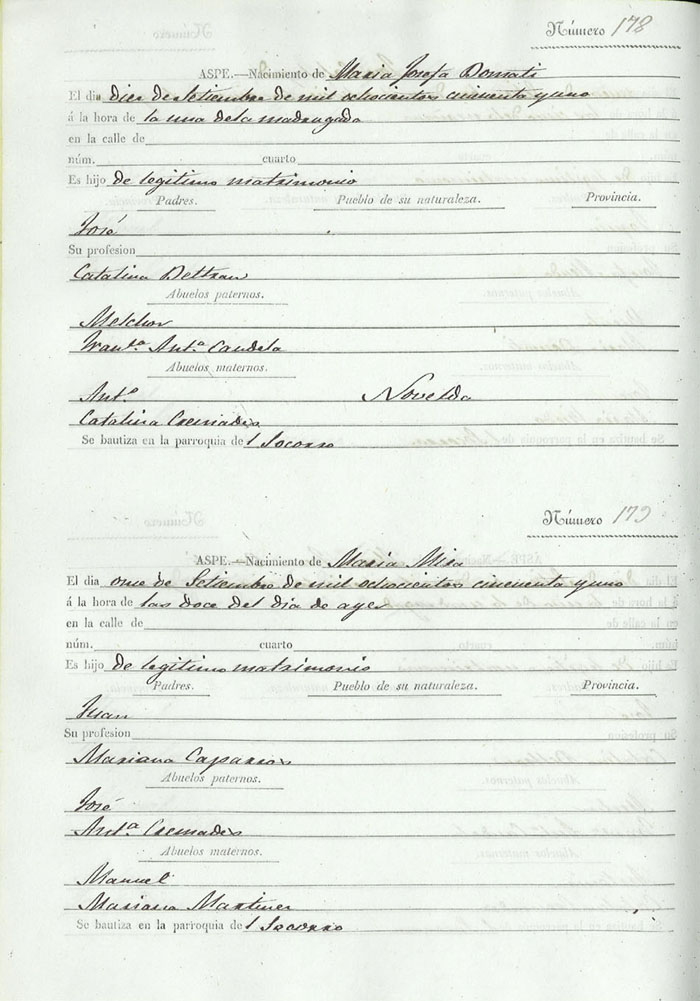 Número 178
ASPE.—Nacimiento de Maria Josefa Bonmati
El dia diez de Setiembre de mil ochocientos cincuenta y uno
á la hora de la una de la madrugada
en la calle de
núm. cuarto
Es hijo de legitimo matrimonio
Padres. Pueblo de su naturaleza. Provincia.
José
Su profesion
Catalina Beltran
Abuelos paternos.
Melchor
Antª Candela
Abuelos maternos.
Antº Novelda
Catalina Cremades
Se bautiza en la parroquia del Socorro
Número 179
ASPE.—Nacimiento de Maria Mira
El dia once de Setiembre de mil ochocientos cincuenta y uno
á la hora de las doce del dia de ayer
en la calle de
núm. cuarto
Es hijo de legitimo matrimonio
Padres. Pueblo de su naturaleza. Provincia.
Juan
Su profesion
Mariana Caparros
Abuelos paternos.
José
Antª Cremades
Abuelos maternos.
Manuel
Mariana Martinez
Se bautiza en la parroquia del Socorro